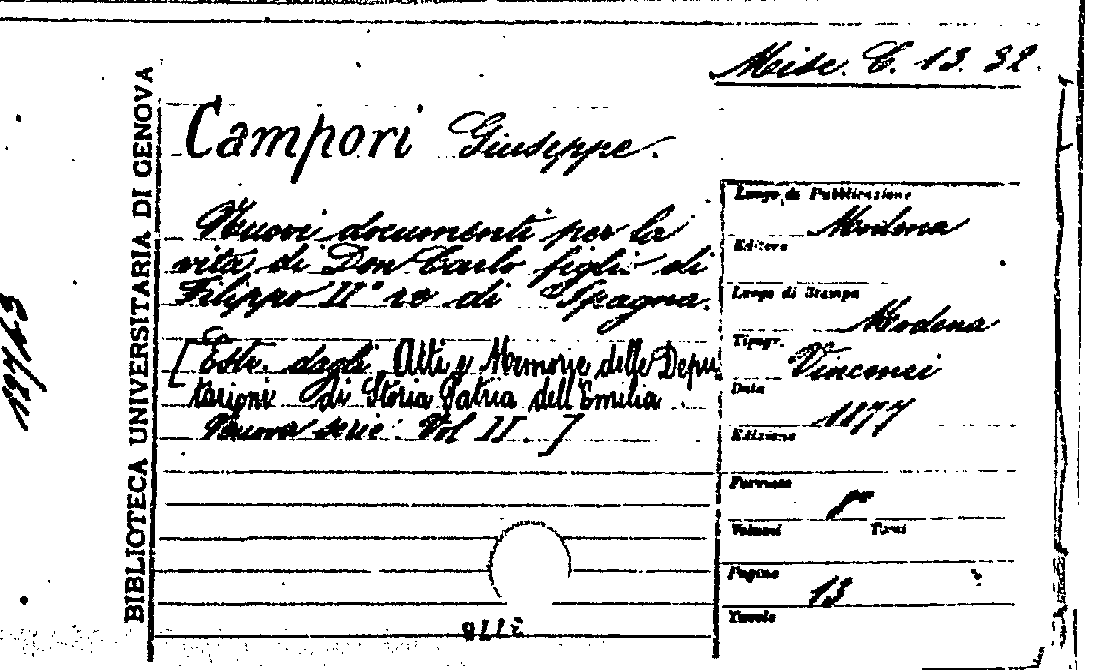 Misc. C. 13. 32.
BIBLIOTECA UNIVERSITARIA DI GENOVA
Campori Giuseppe.
Nuovi documenti per la
vita di Don Carlo figlio di
Filippo II° re di Spagna.
[Estr. dagli Atti e Memorie delle Depu
tazioni di Storia Patria dell'Emilia
Nuova serie. Vol II.]
Luogo di Pubblicazione
Modena
Editore
Luogo di Stampa
Modena
Tipogr.
Vincenzi
Data
1877
Edizione
Formato
8°
Volumi Tomi
Pagine
13
Tavole